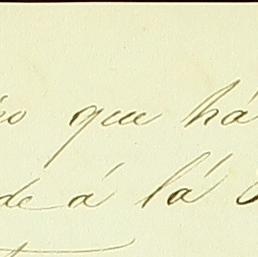 que há
de á lá